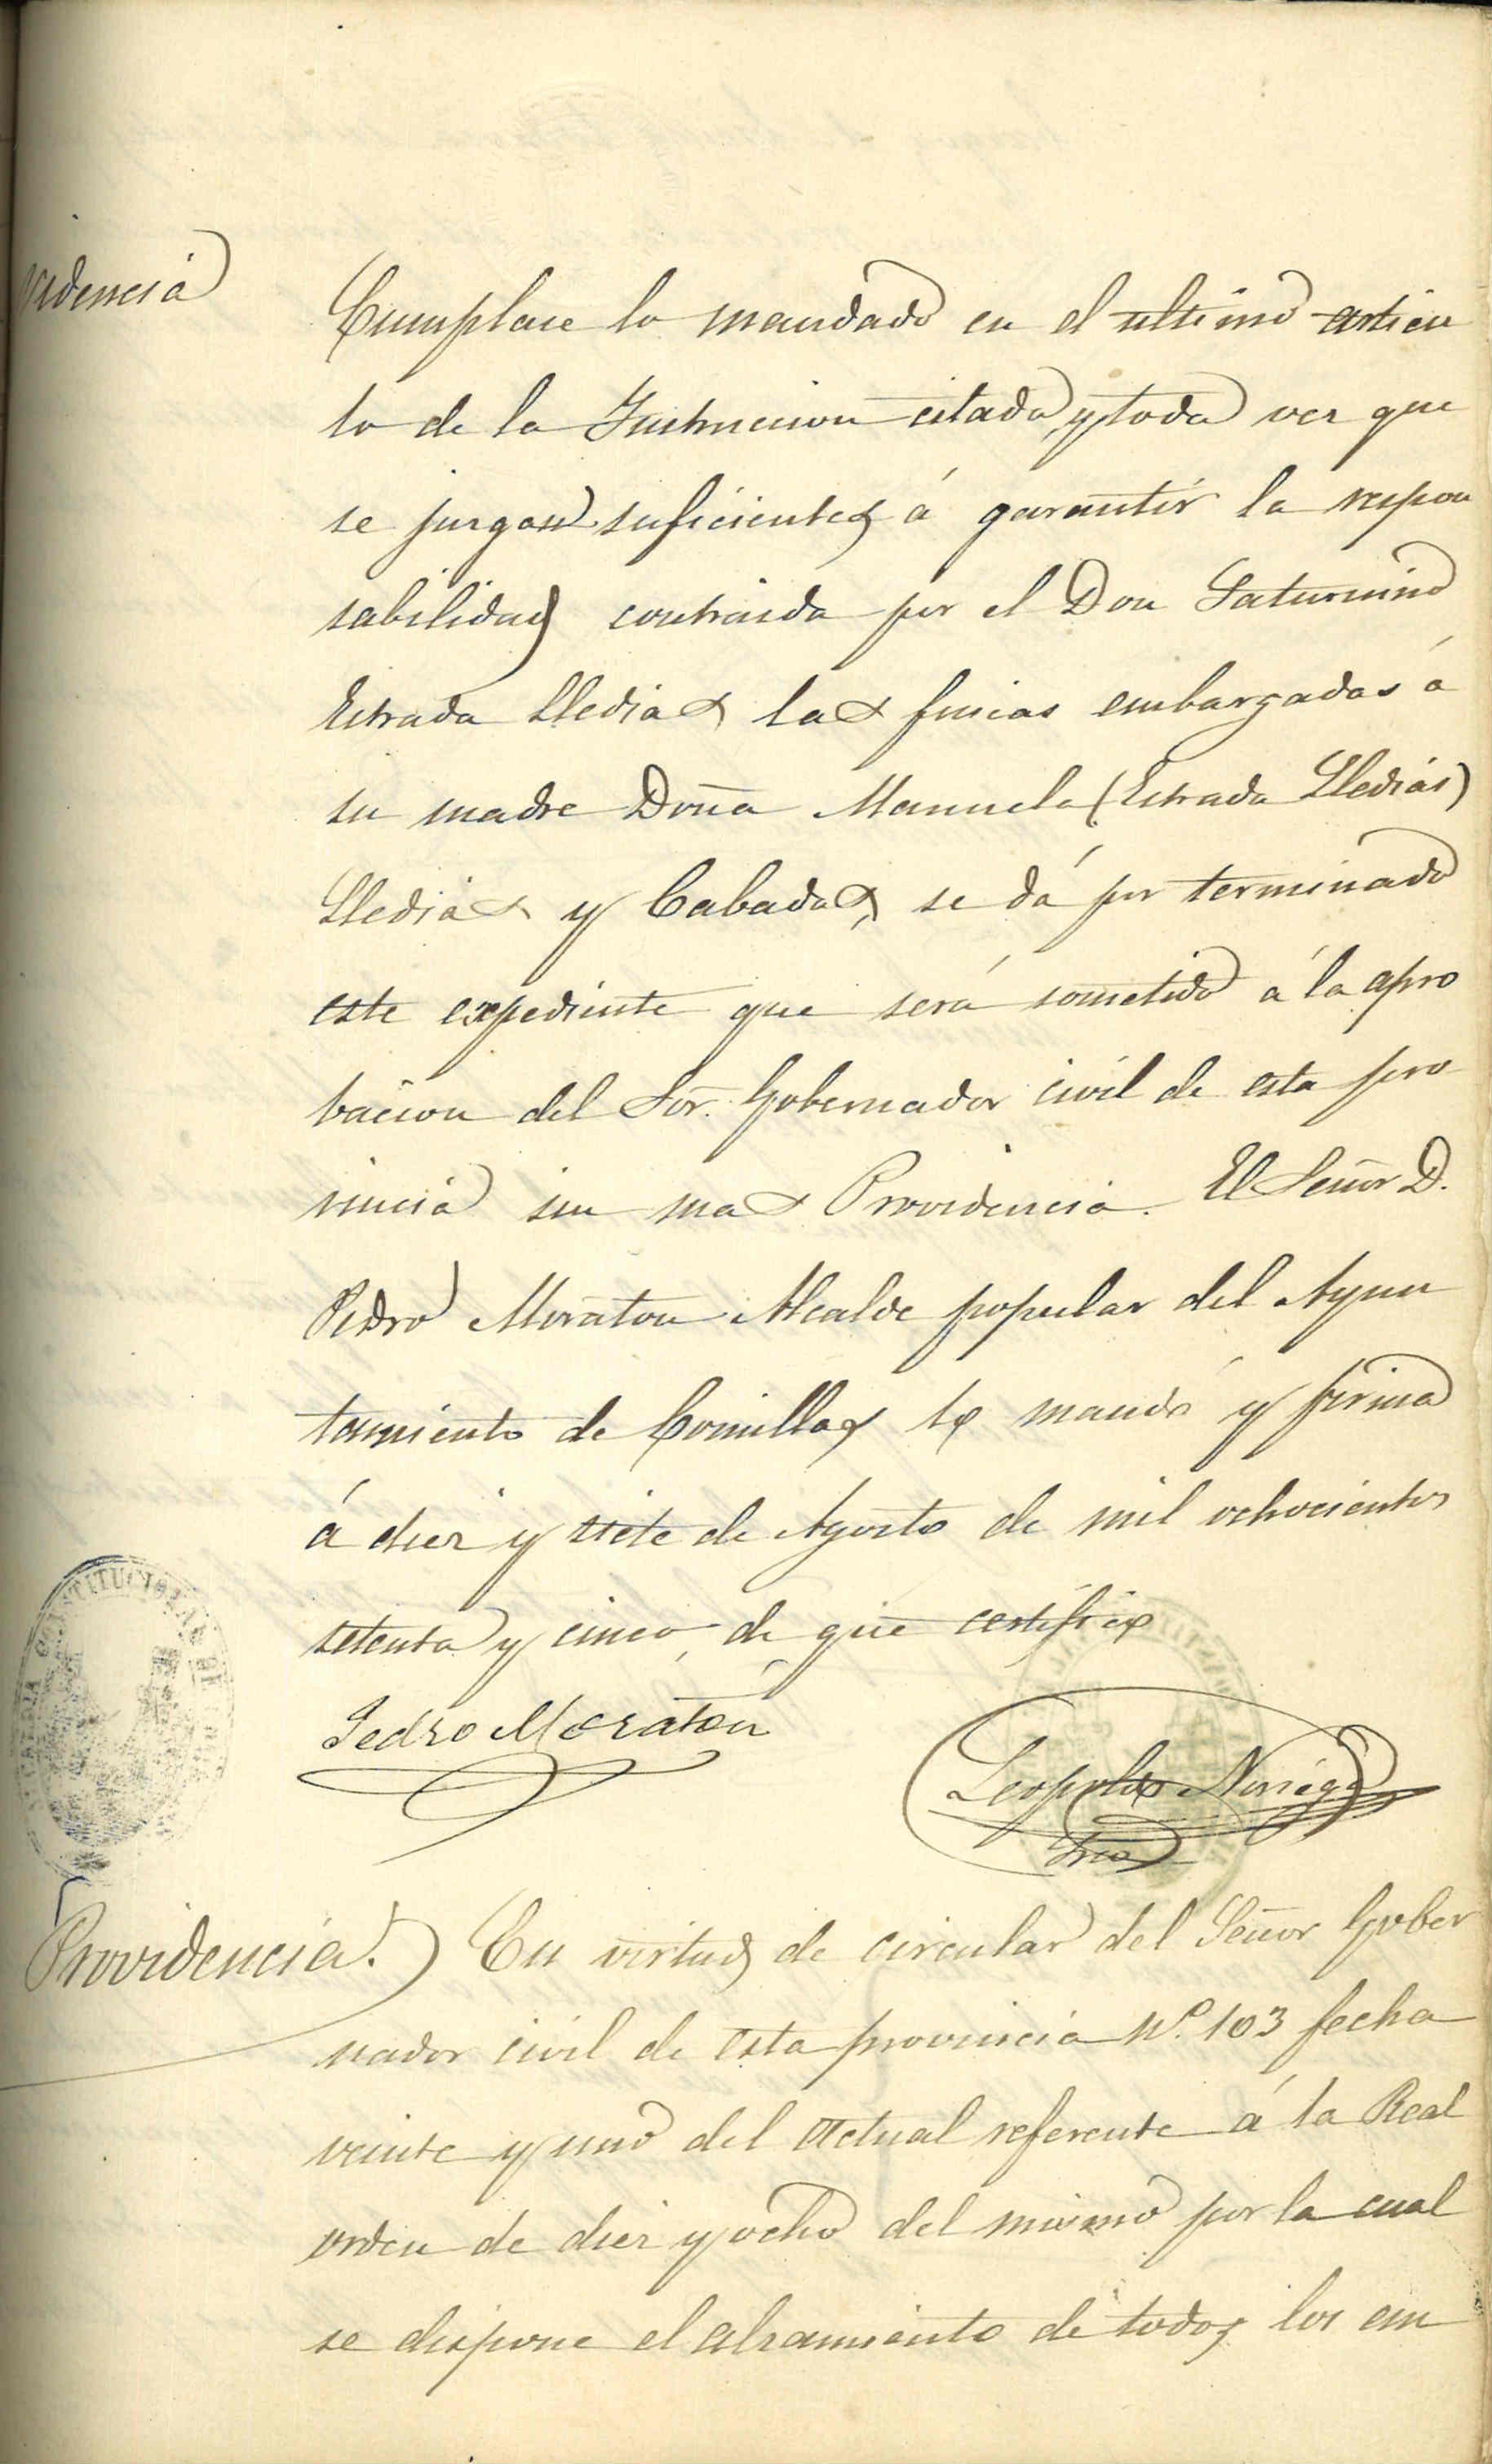 videncia
Cumplase lo mandado en el ultimo articu
lo de la Instruccion citada, y toda vez que
se juzgan suficientes á garantir la respon
sabilidad contraida por el Don Saturnino
Estrada Lledias las fincas embargadas á
su madre Doña Manuela (Estrada Lledias)
Lledias y Cabadas, se dá por terminado
este expediente que será sometido á la apro
bacion del Sor. Gobernador civil de esta pro
vincia sin mas Providencia. El Señor D.
Pedro Moraton Alcalde popular del Ayun
tamiento de Comillas lo mandó y firma
á diez y siete de Agosto de mil ochocientos
setenta y cinco, de que certifico
Pedro Moratón
Leopoldo Noriega
Srio
Providencia.) En virtud de circular del Señor Gober
nador civil de esta provincia Nº. 103 fecha
veinte y uno del actual referente á la Real
orden de diez y ocho del mismo por la cual
se dispone el alzamiento de todos los em